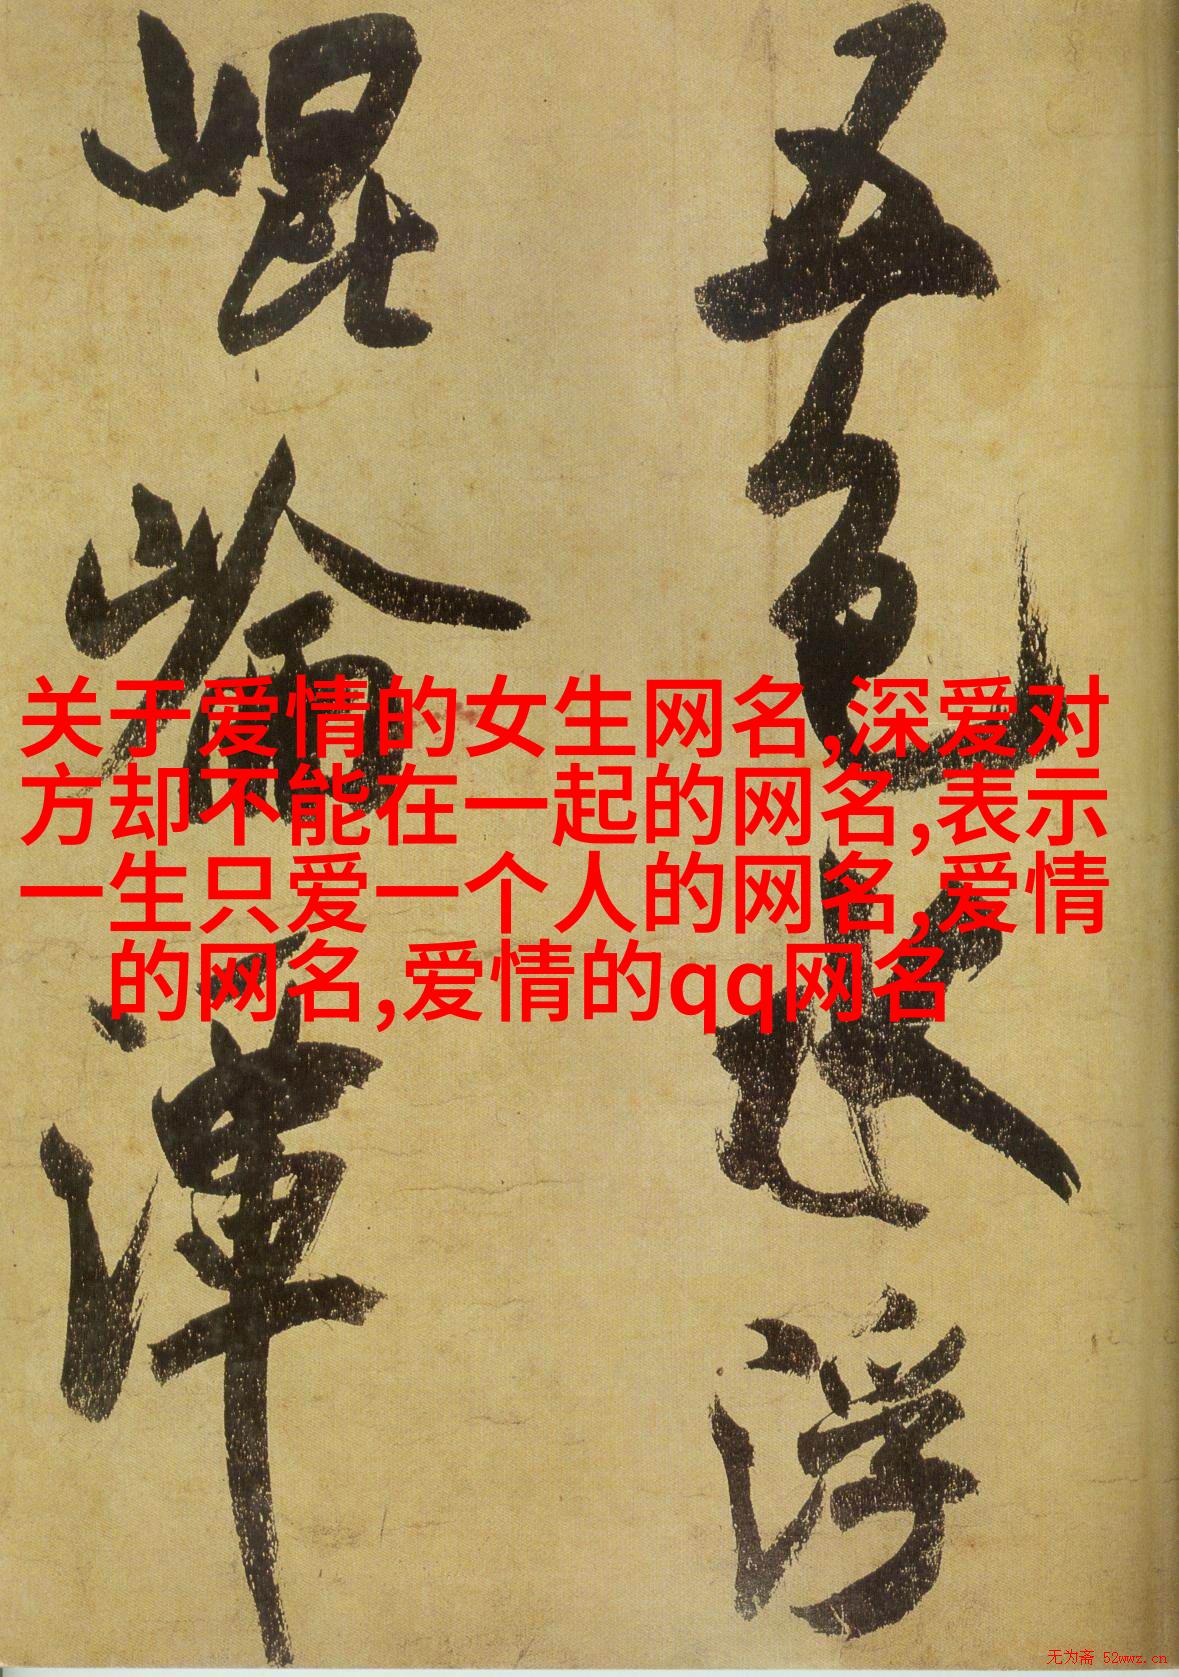 五色水浮
崐崘潭
关于爱情的女生网名,深爱对
方却不能在一起的网名,表示
一生只爱一个人的网名,爱情
的网名,爱情的qq网名
无为斋 52wwz.cn